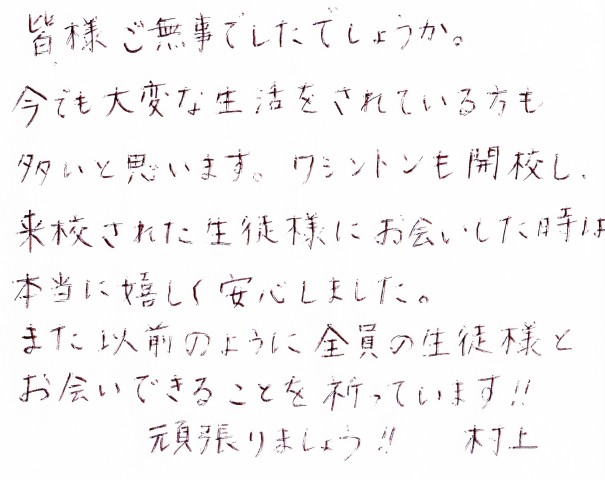 皆様ご無事でしたでしょうか。
今でも大変な生活をされている方も
多いと思います。ワシントンも開校し、
来校された生徒様にお会いした時は
本当に嬉しく安心しました。
また以前のように全員の生徒様と
お会いできることを祈っています!!
頑張りましょう!! 村上